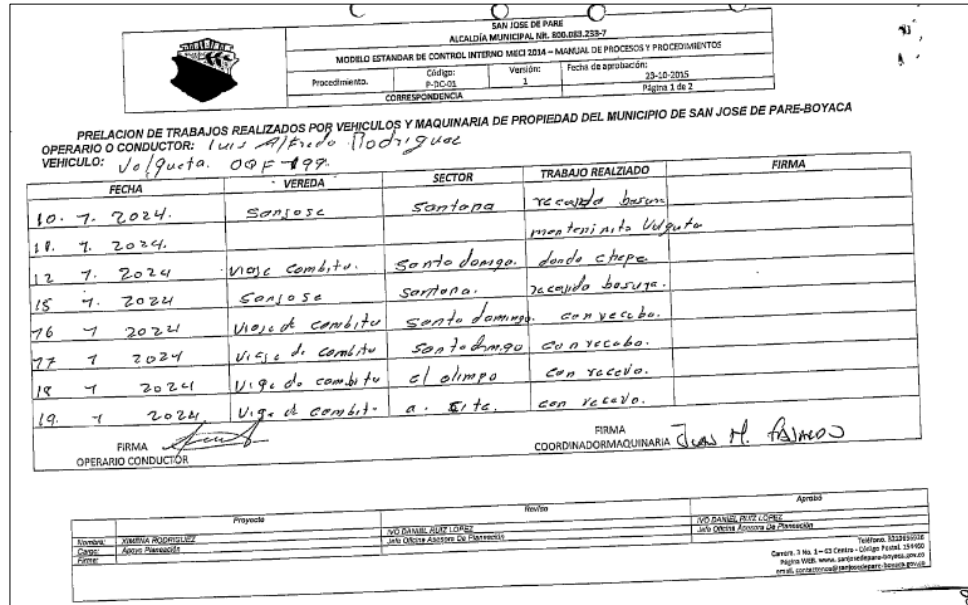 SAN JOSE DE PARE
ALCALDÍA MUNICIPAL Nit. 800.083.233-7
MODELO ESTANDAR DE CONTROL INTERNO MECI 2014 – MANUAL DE PROCESOS Y PROCEDIMIENTOS
Procedimiento. Código: P-DC-01 Versión: 1 Fecha de aprobación: 23-10-2015 Página 1 de 2
CORRESPONDENCIA
PRELACION DE TRABAJOS REALIZADOS POR VEHICULOS Y MAQUINARIA DE PROPIEDAD DEL MUNICIPIO DE SAN JOSE DE PARE-BOYACA
OPERARIO O CONDUCTOR: Luis Alfredo Rodriguez
VEHICULO: Volqueta. OQF 199.
FECHA VEREDA SECTOR TRABAJO REALZIADO FIRMA
10. 7. 2024. Sanjose Santana recogida basura
11. 7. 2024. Volqueta
12 7. 2024 viaje combita. Santo domgo. donde chepe
15 7. 2024 Sanjose Santana. recogida basura.
16 7 2024 Viaje de combita Santo domingo. con recebo.
17 7 2024 Viaje de combita Santodmigo con recebo.
18 7 2024 Vige de combita el olimpo con recevo.
19. 7 2024 Vige de combit. a. con recevo.
FIRMA
OPERARIO CONDUCTOR
FIRMA
COORDINADORMAQUINARIA Juan M. FAJARDO
Proyecto Reviso Aprobó
Nombre: XIMENA RODRIGUEZ IVO DANIEL RUIZ LOPEZ IVO DANIEL RUIZ LOPEZ
Cargo: Apoyo Planeación Jefe Oficina Asesora De Planeación Jefe Oficina Asesora De Planeación
Firma:
Carrera. 3 No. 1 – 63 Centro - Código Postal. 154460
Página WEB. www. sanjosedepare-boyaca.gov.co
email. contactenos@sanjosedepare-boyaca.gov.co